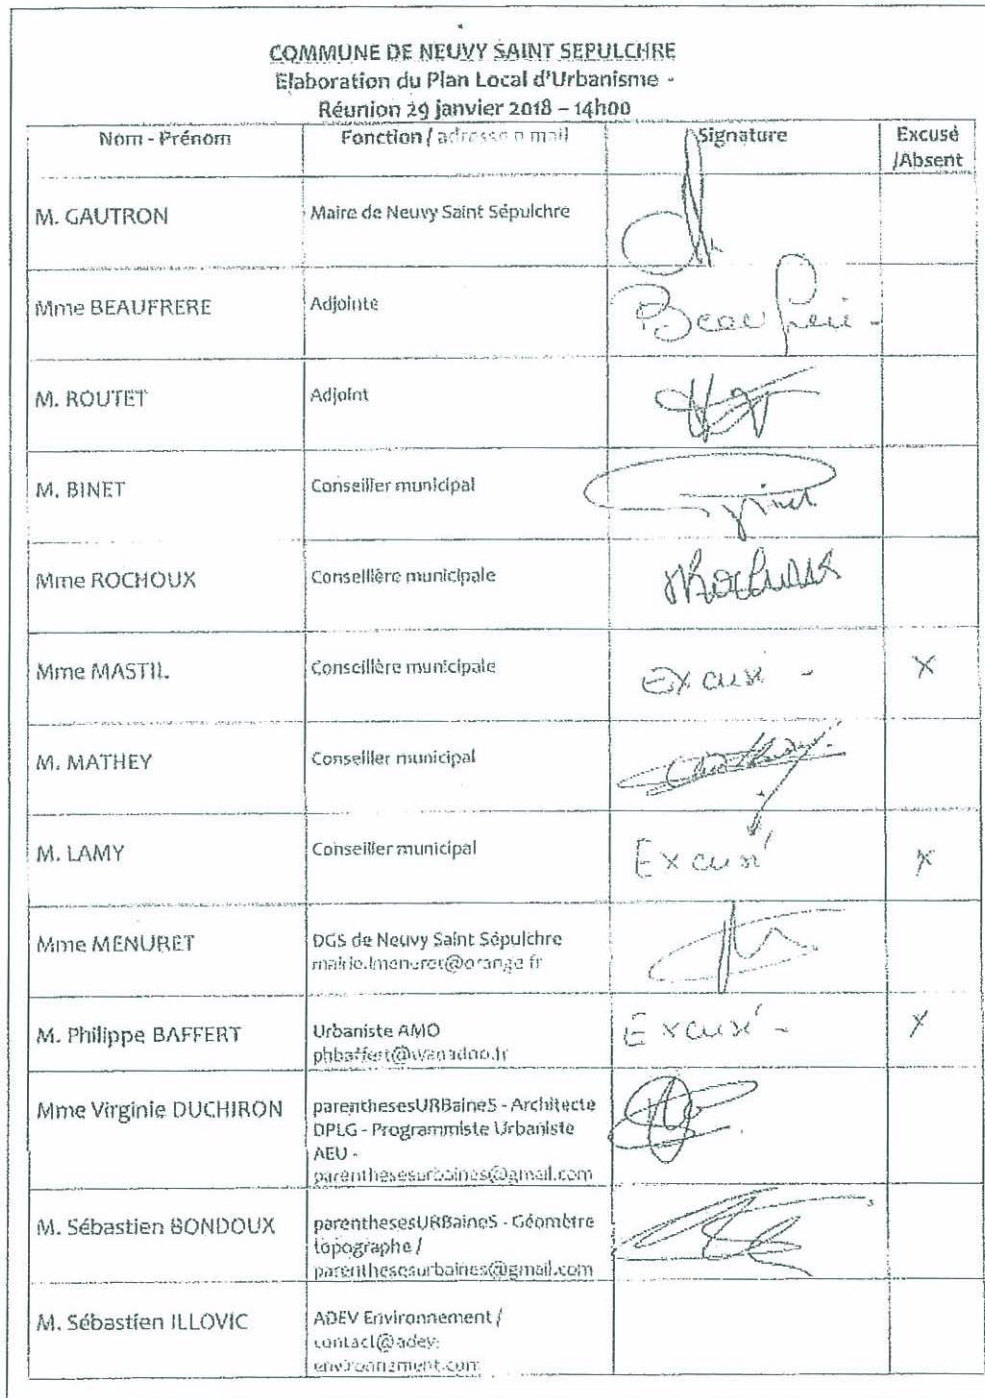 COMMUNE DE NEUVY SAINT SEPULCHRE
Elaboration du Plan Local d'Urbanisme -
Réunion 29 janvier 2018 – 14h00
Nom - Prénom
Fonction / adresse e mail
Signature
Excusé
/Absent
M. GAUTRON
Maire de Neuvy Saint Sépulchre
Mme BEAUFRERE
Adjointe
M. ROUTET
Adjoint
M. BINET
Conseiller municipal
Mme ROCHOUX
Conseillère municipale
Mme MASTIL
Conseillère municipale
Excusé -
X
M. MATHEY
Conseiller municipal
M. LAMY
Conseiller municipal
Excusé
X
Mme MENURET
DGS de Neuvy Saint Sépulchre
mairie.lmenuret@orange.fr
M. Philippe BAFFERT
Urbaniste AMO
phbaffert@wanadoo.fr
Excusé -
X
Mme Virginie DUCHIRON
parenthesesURBaineS - Architecte
DPLG - Programmiste Urbaniste
AEU -
parenthesesurbaines@gmail.com
M. Sébastien BONDOUX
parenthesesURBaineS - Géomètre
topographe /
parenthesesurbaines@gmail.com
M. Sébastien ILLOVIC
ADEV Environnement /
contact@adev-
environnement.com